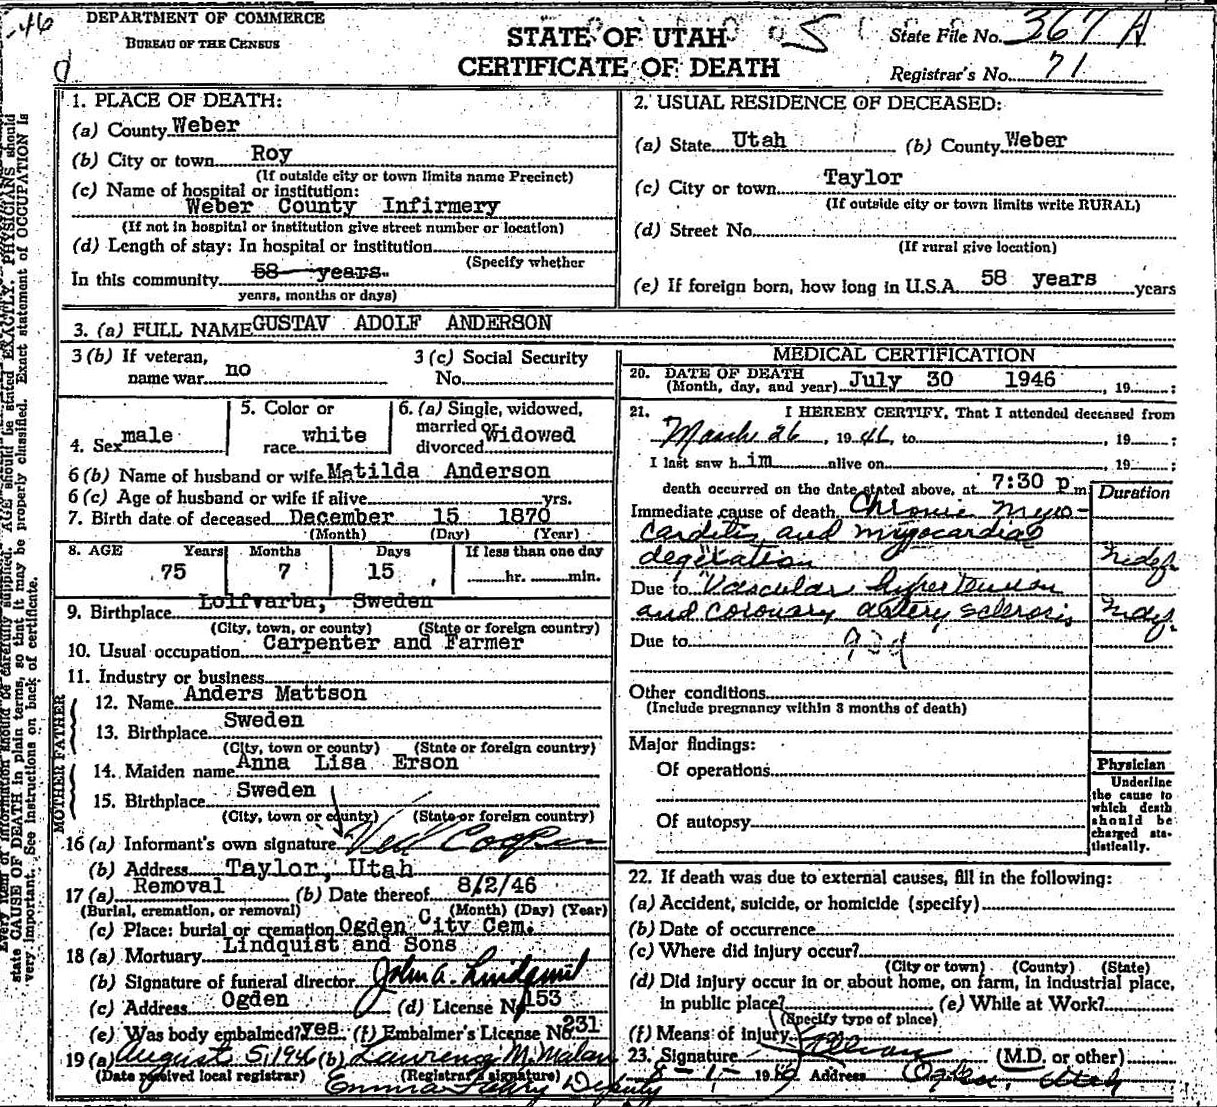 -46
DEPARTMENT OF COMMERCE
BUREAU OF THE CENSUS
STATE OF UTAH
CERTIFICATE OF DEATH
State File No. 367 A
Registrar's No. 71
1. PLACE OF DEATH:
(a) County Weber
(b) City or town Roy
(If outside city or town limits name Precinct)
(c) Name of hospital or institution:
Weber County Infirmery
(If not in hospital or institution give street number or location)
(d) Length of stay: In hospital or institution
(Specify whether
In this community 58 years.
years, months or days)
2. USUAL RESIDENCE OF DECEASED:
(a) State Utah (b) County Weber
(c) City or town Taylor
(If outside city or town limits write RURAL)
(d) Street No.
(If rural give location)
(e) If foreign born, how long in U.S.A. 58 years years
3. (a) FULL NAME GUSTAV ADOLF ANDERSON
3 (b) If veteran, name war no
3 (c) Social Security No.
4. Sex male
5. Color or race white
6. (a) Single, widowed, married or divorced Widowed
6 (b) Name of husband or wife Matilda Anderson
6 (c) Age of husband or wife if alive yrs.
7. Birth date of deceased December 15 1870
(Month) (Day) (Year)
8. AGE Years Months Days If less than one day
75 7 15 hr. min.
9. Birthplace Loffvarba, Sweden
(City, town, or county) (State or foreign country)
10. Usual occupation Carpenter and Farmer
11. Industry or business
FATHER
12. Name Anders Mattson
13. Birthplace Sweden
(City, town or county) (State or foreign country)
MOTHER
14. Maiden name Anna Lisa Erson
15. Birthplace Sweden
(City, town or county) (State or foreign country)
16 (a) Informant's own signature Cooper
(b) Address Taylor, Utah
17 (a) Removal (b) Date thereof 8/2/46
(Burial, cremation, or removal) (Month) (Day) (Year)
(c) Place: burial or cremation Ogden City Cem.
18 (a) Mortuary Lindquist and Sons
(b) Signature of funeral director John A. Lindquist
(c) Address Ogden (d) License No. 153
(e) Was body embalmed? yes (f) Embalmer's License No. 231
19 (a) August 5, 1946 (b) Laurena M. Malan
(Date received local registrar) (Registrar's signature)
Emma Deputy
MEDICAL CERTIFICATION
20. DATE OF DEATH
(Month, day, and year) July 30 1946, 19 ;
21. I HEREBY CERTIFY, That I attended deceased from
March 26, 1946, to , 19 ;
I last saw him alive on , 19 ;
death occurred on the date stated above, at 7:30 p m
Duration
Immediate cause of death Chronic Myo-
carditis and myocardial
Indef.
Due to Vascular hypertension
and coronary artery sclerosis Indef.
Due to 93d
Other conditions
(Include pregnancy within 3 months of death)
Major findings:
Of operations
Of autopsy
Physician
Underline
the cause to
which death
should be
charged sta-
tistically.
22. If death was due to external causes, fill in the following:
(a) Accident, suicide, or homicide (specify)
(b) Date of occurrence
(c) Where did injury occur?
(City or town) (County) (State)
(d) Did injury occur in or about home, on farm, in industrial place,
in public place? (e) While at Work?
(Specify type of place)
(f) Means of injury
23. Signature (M.D. or other)
8-1- 19 Address Ogden, Utah
state CAUSE OF DEATH in plain terms, so that it may be properly classified. Exact statement of OCCUPATION is
very important. See instructions on back of certificate.